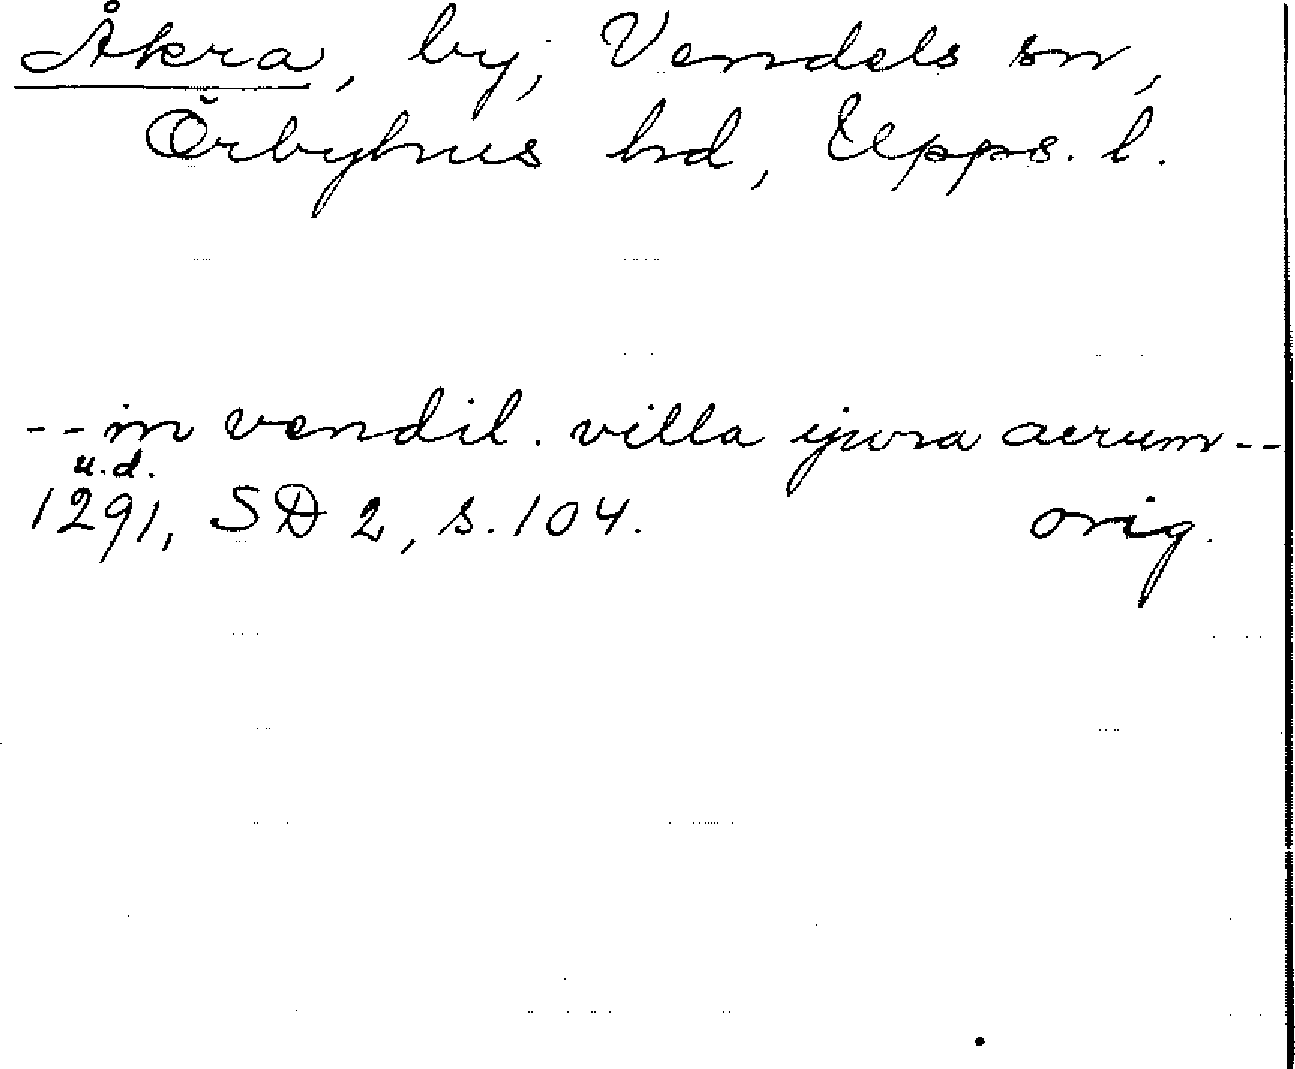 Åkra, by, Vendels sn,
Örbyhus hd, Upps. l.
-- in vendil. villa ijwra acrum --
u.d.
1291, SD 2, s. 104. orig.